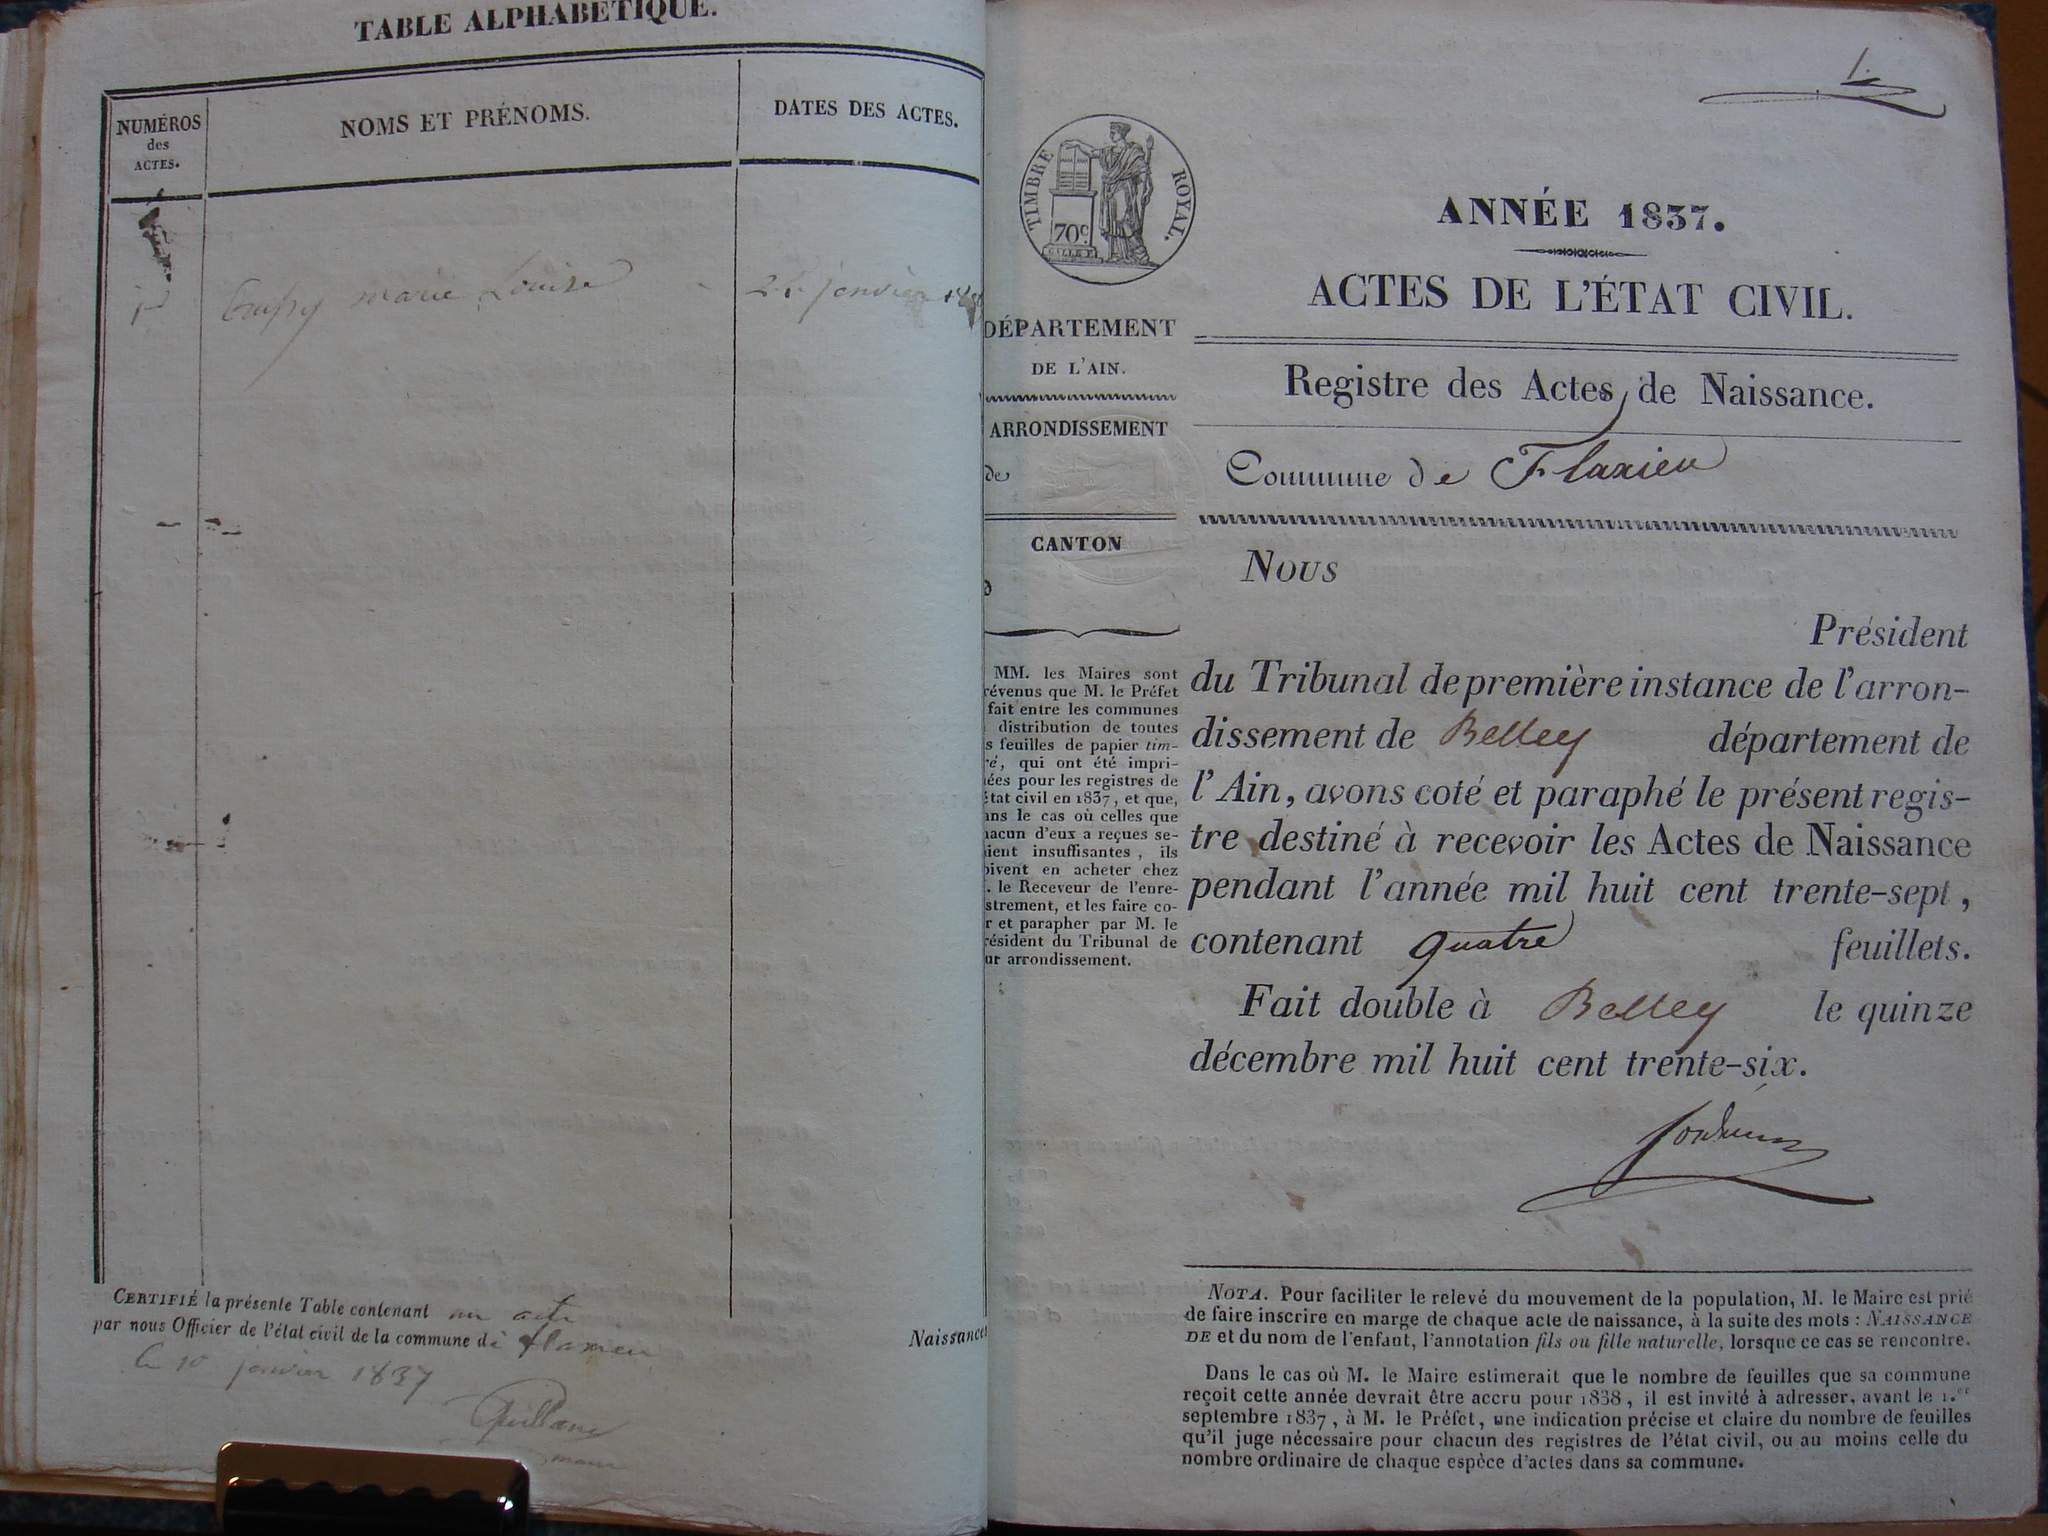 TABLE ALPHABÉTIQUE.
NUMÉROS
des
ACTES.
NOMS ET PRÉNOMS.
DATES DES ACTES.
marie Louise
janvier
CERTIFIÉ la présente Table contenant un acte
par nous Officier de l'état civil de la commune de flaxieu
le 10 janvier 1837
maire
Naissances
1.
TIMBRE ROYAL.
70c
ANNÉE 1837.
ACTES DE L'ÉTAT CIVIL.
DÉPARTEMENT
DE L'AIN.
Registre des Actes de Naissance.
ARRONDISSEMENT
de
Commune de Flaxieu
CANTON
MM. les Maires sont
révenus que M. le Préfet
fait entre les communes
distribution de toutes
s feuilles de papier tim-
ré, qui ont été impri-
ées pour les registres de
état civil en 1837, et que,
ans le cas où celles que
hacun d'eux a reçues se-
aient insuffisantes, ils
oivent en acheter chez
. le Receveur de l'enre-
strement, et les faire co-
r et parapher par M. le
résident du Tribunal de
ur arrondissement.
Nous
Président
du Tribunal de première instance de l'arron-
dissement de Belley département de
l'Ain, avons coté et paraphé le présent regis-
tre destiné à recevoir les Actes de Naissance
pendant l'année mil huit cent trente-sept,
contenant quatre feuillets.
Fait double à Belley le quinze
décembre mil huit cent trente-six.
NOTA. Pour faciliter le relevé du mouvement de la population, M. le Maire est prié
de faire inscrire en marge de chaque acte de naissance, à la suite des mots : NAISSANCE
DE et du nom de l'enfant, l'annotation fils ou fille naturelle, lorsque ce cas se rencontre.
Dans le cas où M. le Maire estimerait que le nombre de feuilles que sa commune
reçoit cette année devrait être accru pour 1838, il est invité à adresser, avant le 1.er
septembre 1837, à M. le Préfet, une indication précise et claire du nombre de feuilles
qu'il juge nécessaire pour chacun des registres de l'état civil, ou au moins celle du
nombre ordinaire de chaque espèce d'actes dans sa commune.